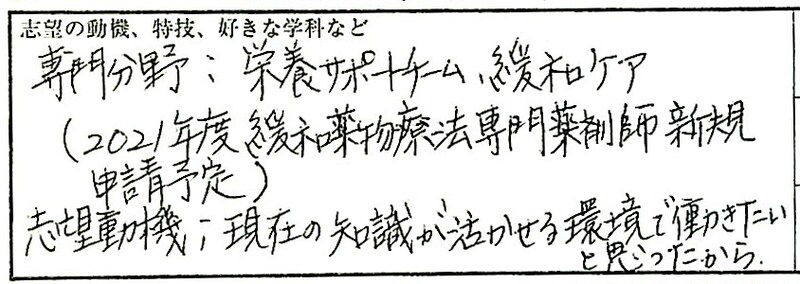 志望の動機、特技、好きな学科など
専門分野；栄養サポートチーム、緩和ケア
（2021年度緩和薬物療法専門薬剤師新規
申請予定）
志望動機；現在の知識が活かせる環境で働きたい
と思ったから.